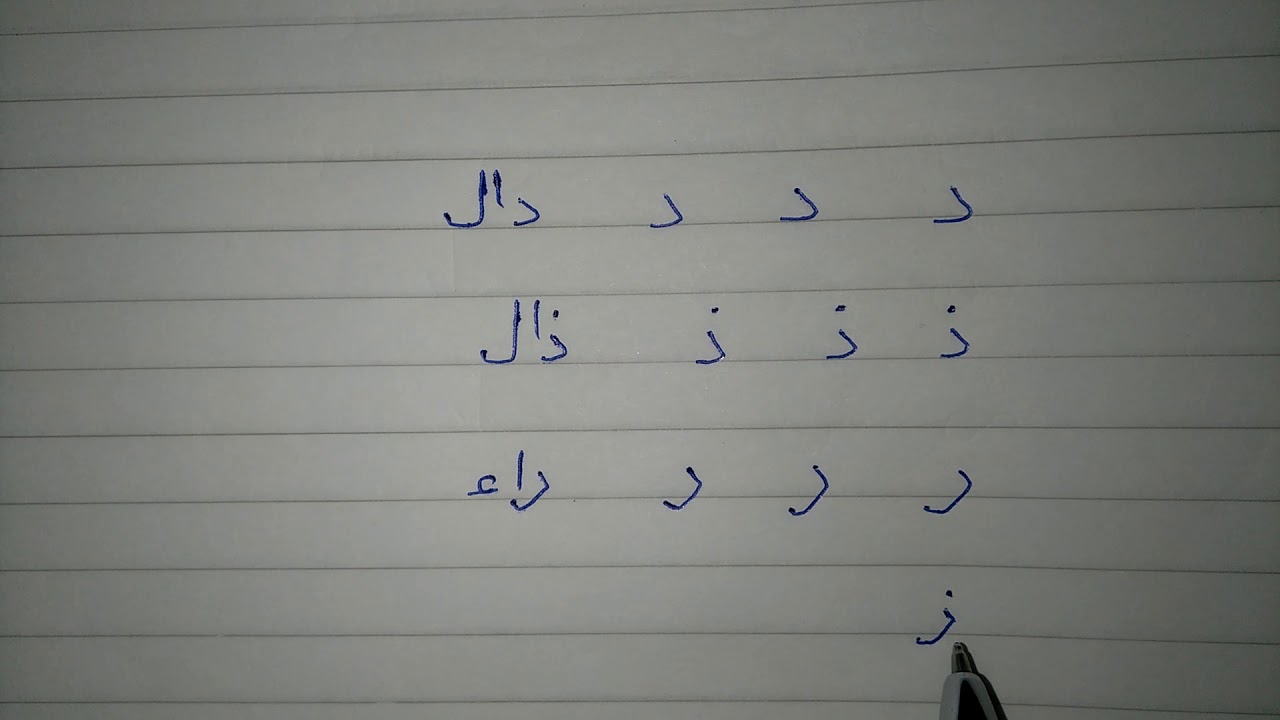 د د د دال
ذ ذ ذ ذال
ر ر ر راء
ز